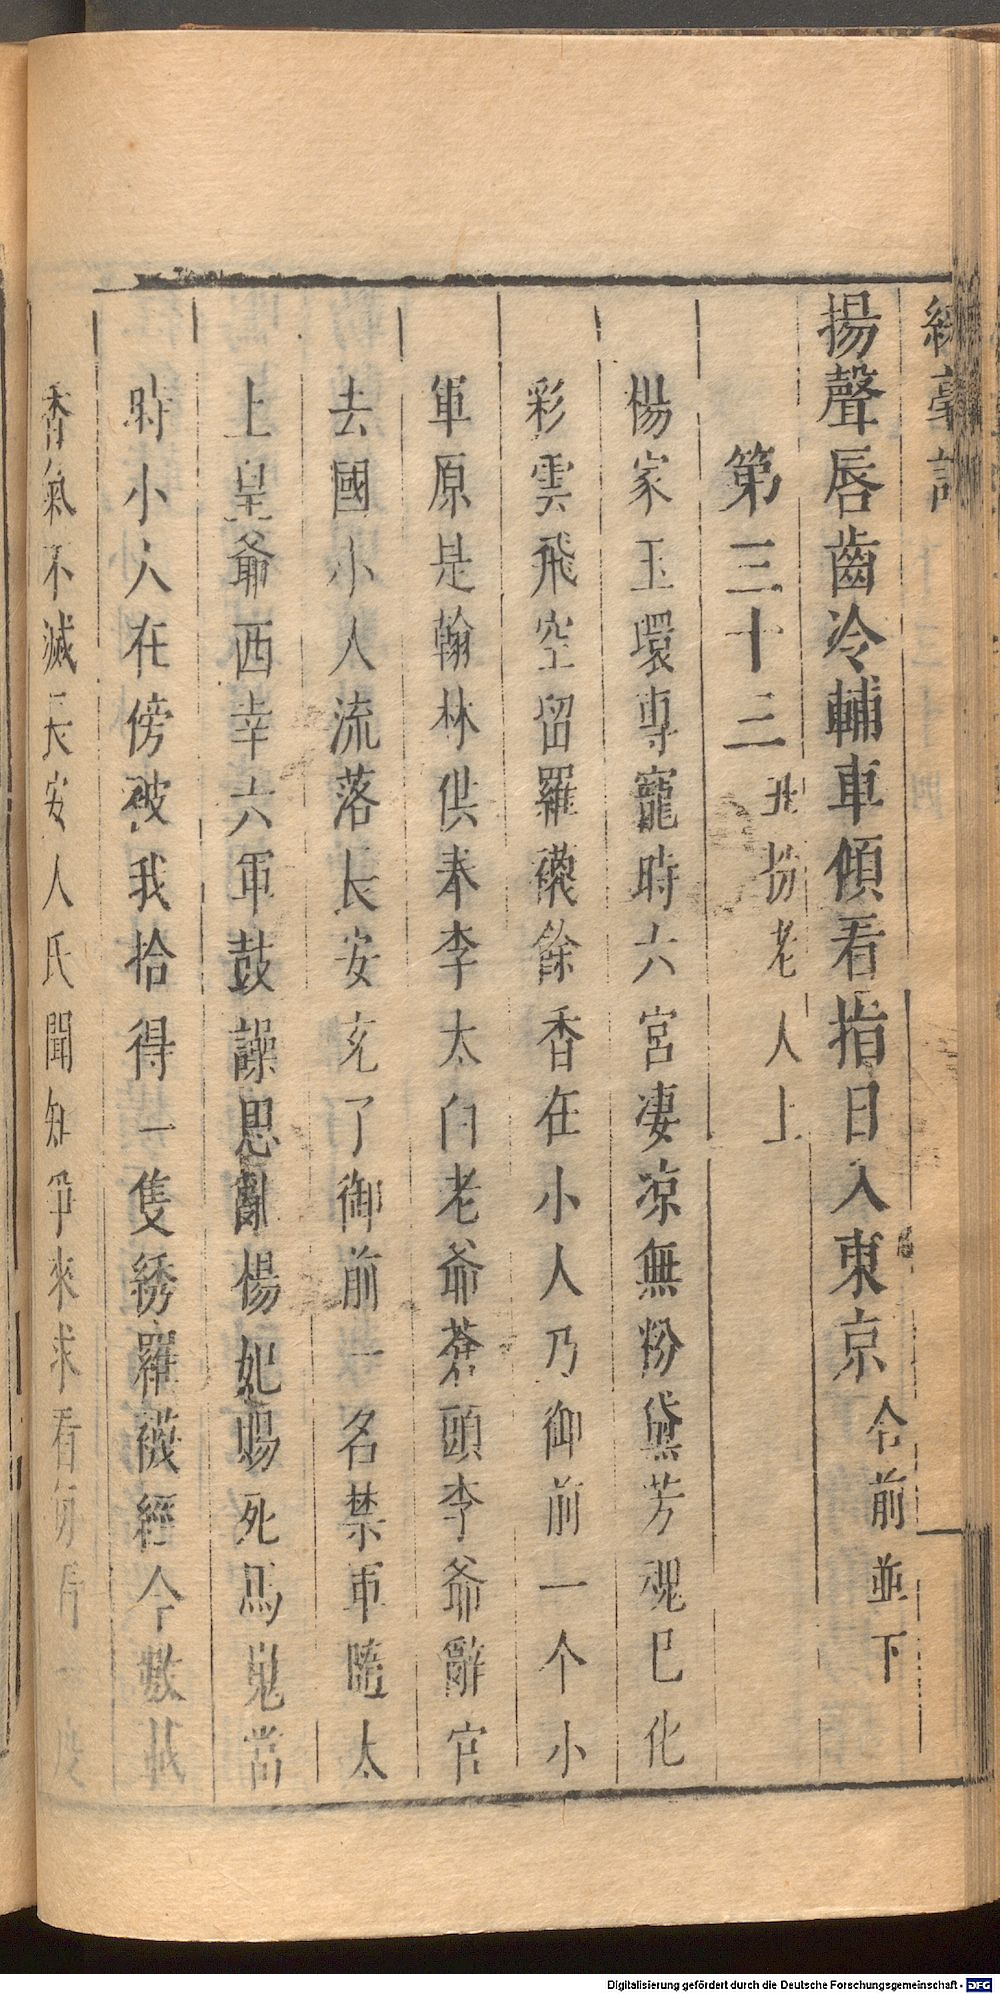 揚聲唇齒冷輔車傾看指日入東京 仝前並下
第三十三 丑扮老人上
楊家玉環專寵時六宮凄凉無粉黛芳魂已化
彩雲飛空留羅襪餘香在小人乃御前一个小
軍原是翰林供奉李太白老爺蒼頭李爺辭官
去國小人流落長安充了御前一名禁軍隨太
上皇爺西幸六軍鼓譟思亂楊妃賜死馬嵬當
時小人在傍被我拾得一隻綉羅襪經今數載
香氣不滅長安人氏聞知爭來求看每看一度
Digitalisierung gefördert durch die Deutsche Forschungsgemeinschaft - DFG